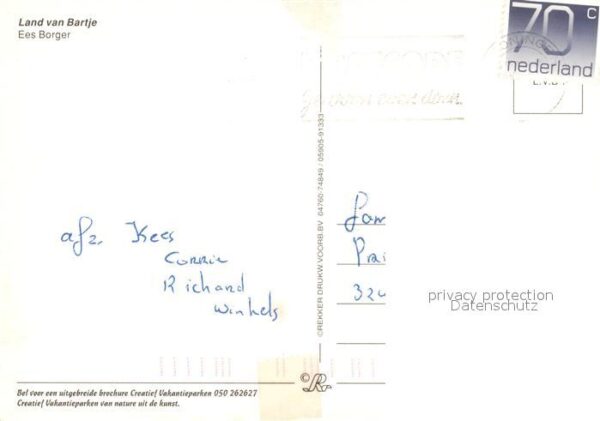 Land van Bartje
Ees Borger
70 c
nederland
POSTCODE
afz. Kees
Corrie
Richard
Winkels
©REKKER DRUKW.VOORB.BV 04760-74849 / 05905-91333
Fam
Prai
320
privacy protection
Datenschutz
Bel voor een uitgebreide brochure Creatief Vakantieparken 050 262627
Creatief Vakantieparken van nature uit de kunst.